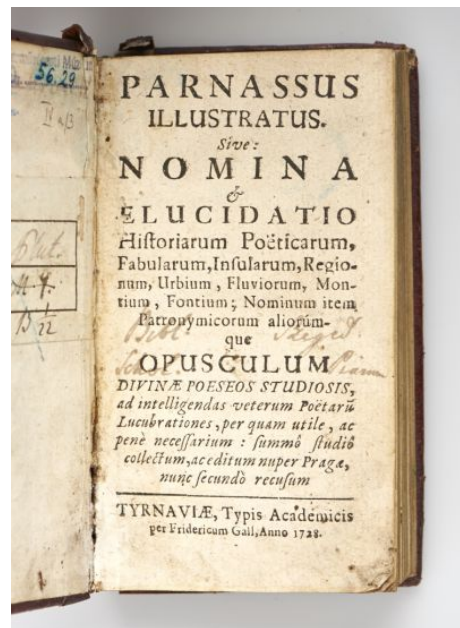 56.29
PARNASSUS
ILLUSTRATUS.
Sive:
NOMINA
&
ELUCIDATIO
Hiſtoriarum Poëticarum,
Fabularum, Inſularum, Regio-
num, Urbium, Fluviorum, Mon-
tium, Fontium; Nominum item
Patronymicorum aliorúm-
que
Bibl.
OPUSCULUM
DIVINÆ POESEOS STUDIOSIS,
ad intelligendas veterum Poëtarū
Lucubrationes, per quam utile, ac
penè neceſſarium: ſummô ſtudiô
collectum, ac editum nuper Pragæ,
nunc ſecundò recuſum
TYRNAVIÆ, Typis Academicis
per Fridericum Gall, Anno 1728.